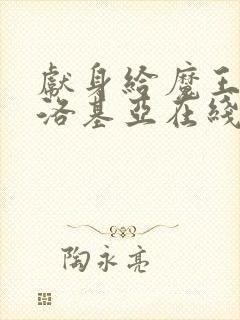 獻身給魔王
洛基亞在綫
陶永亮